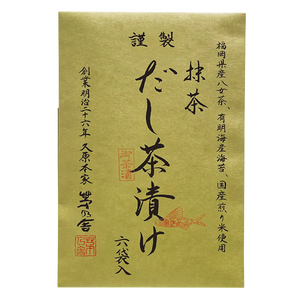 謹製
福岡県産八女茶、有明海産海苔、国産煎り米使用
抹茶
だし茶漬け
六袋入
創業明治二十六年 久原本家 茅乃舎